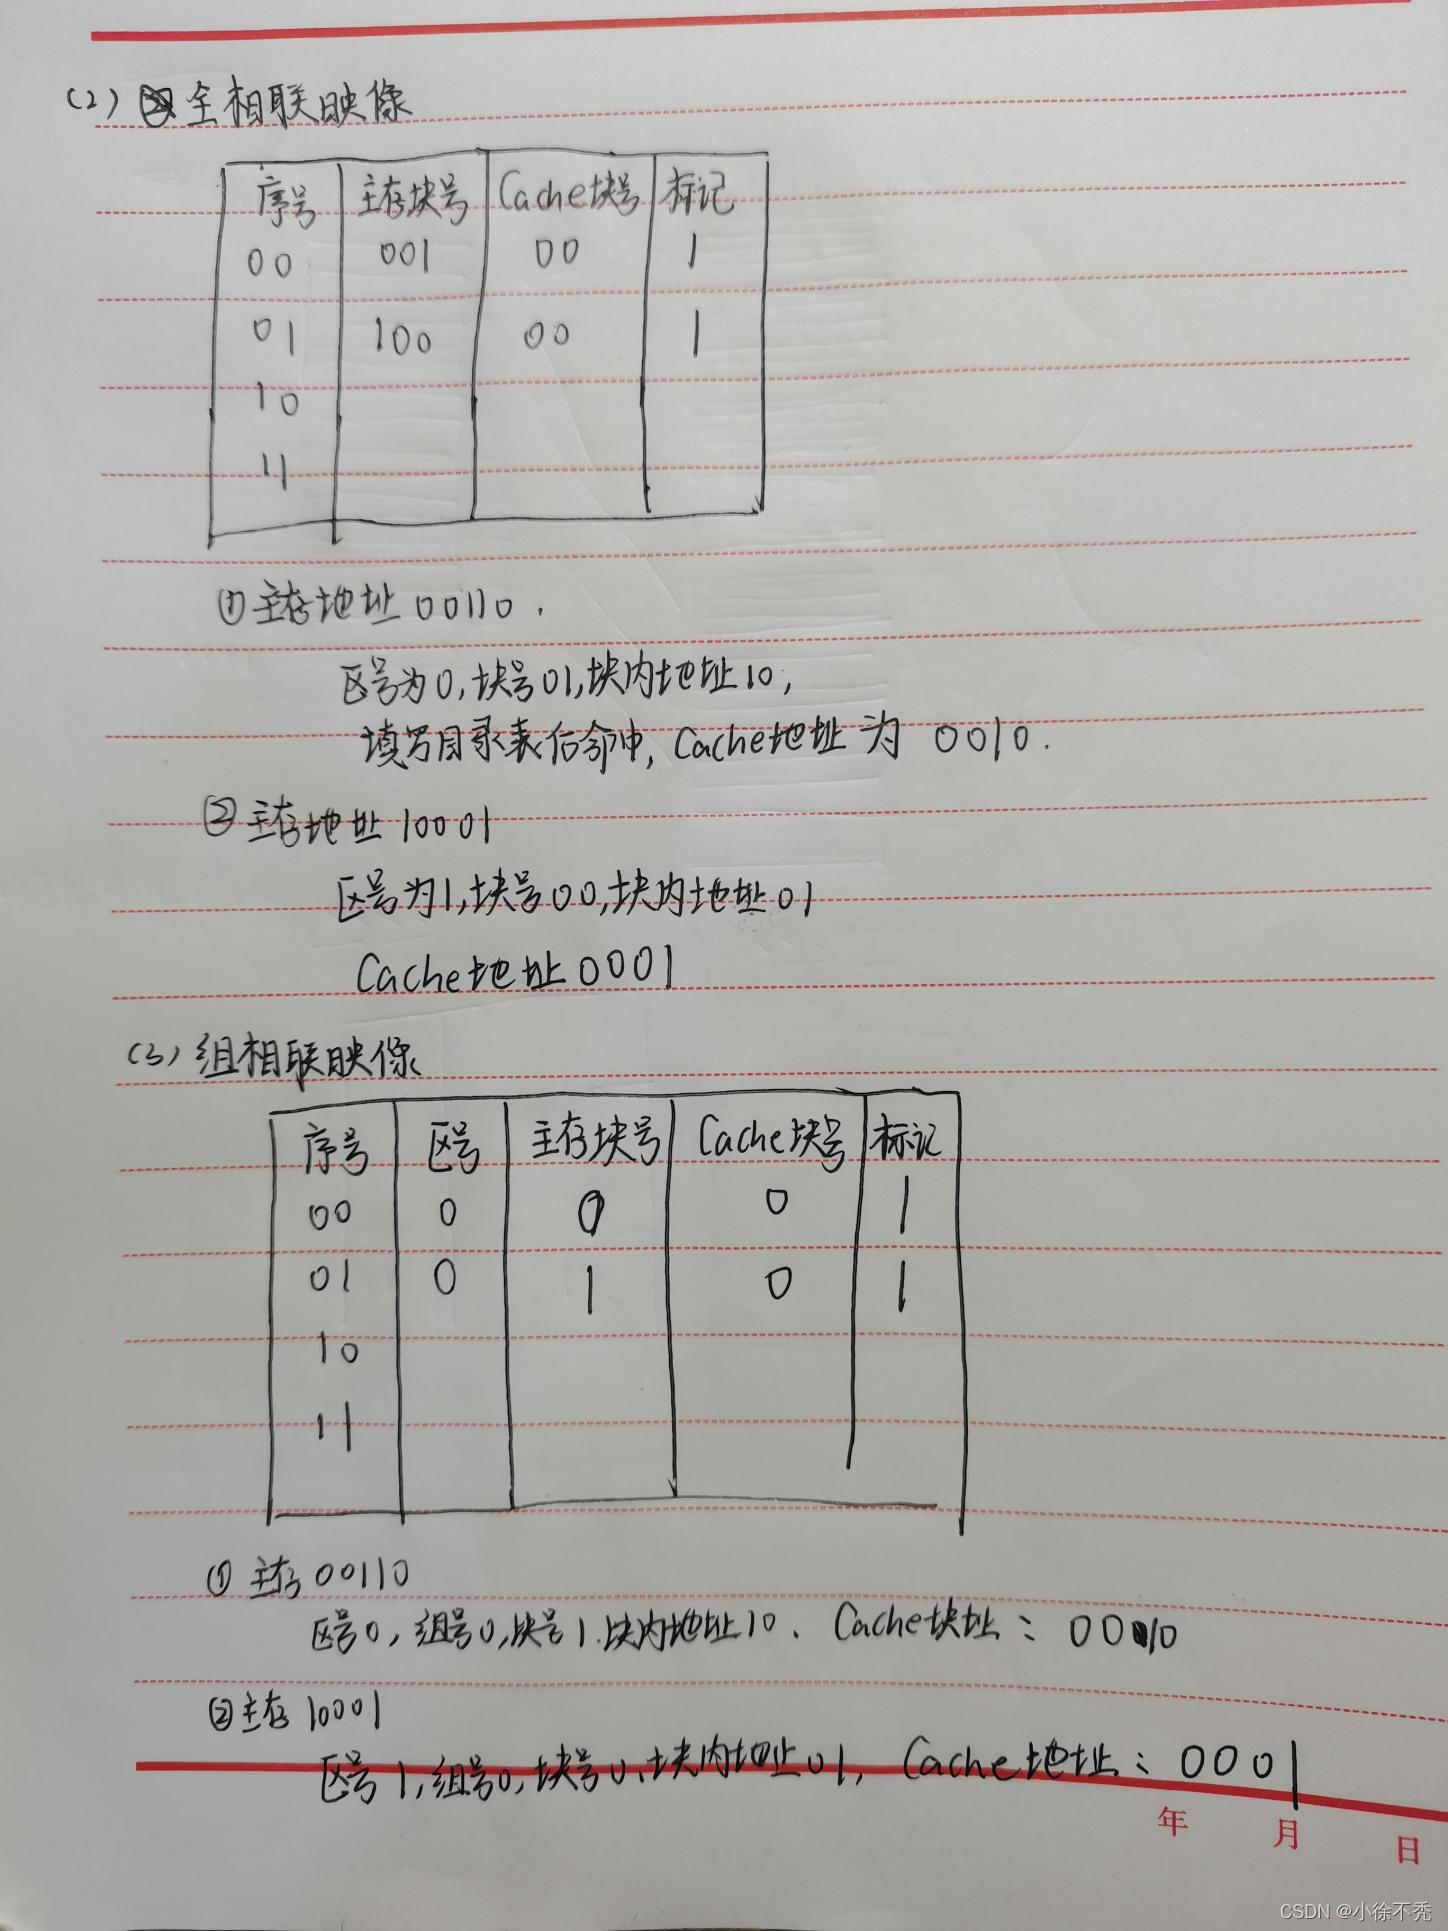 (2) 全相联映像
序号 主存块号 Cache块号 标记
00 001 00 1
01 100 00 1
10
11
① 主存地址 00110.
区号为0,块号01,块内地址10,
填写目录表后命中,Cache地址为 0010.
② 主存地址 10001
区号为1,块号00,块内地址01
Cache地址 0001
(3) 组相联映像
序号 区号 主存块号 Cache块号 标记
00 0 0 0 1
01 0 1 0 1
10
11
① 主存 00110
区号0,组号0,块号1.块内地址10、Cache块址:0010
② 主存 10001
区号1,组号0,块号0、块内地址01,Cache地址:0001
年 月 日
CSDN @小徐不秃